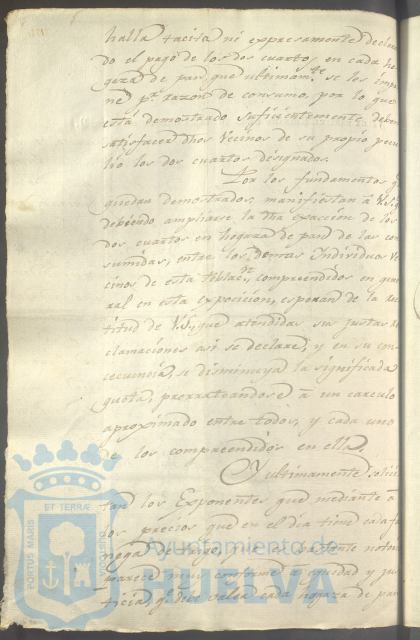 halla tacita ni expresamente declara
do el pago de los dos cuartos en cada ho
gaza de pan, que ultimam.te se les impo
ne pr. razon de consumo, por lo que
está demostrado suficientemente deben
satisfacer dhos Vecinos de su propio pecu
lio los dos cuartos designados.
Por los fundamentos q
quedan demostrados, manifiestan á V.S. q
debiendo ampliarse la dha exaccion de los
dos cuartos en hogaza de pan de las con
sumidas, entre los demas Individuos Ve
cinos de esta Poblac.n, comprendidos en gene
ral en esta exposicion, esperan de la rec
titud de V.S. que atendidas sus justas re
clamaciones asi se declare, y en su con
secuencia, se disminuya la significada
quota, prorrateandose á un calculo
aproximado entre todos, y cada uno
de los comprendidos en ella.
Y ultimamente solici
tan los Exponentes que mediante a
los precios que en el dia tiene cada fa
nega de trigo, y es bastante notorio
parece muy conforme a equidad y jus
ticia, q.e debe valer cada hogaza de pan
PORTUS MARIS
ET TERRÆ
CUSTODIA
Ayuntamiento de
HUELVA